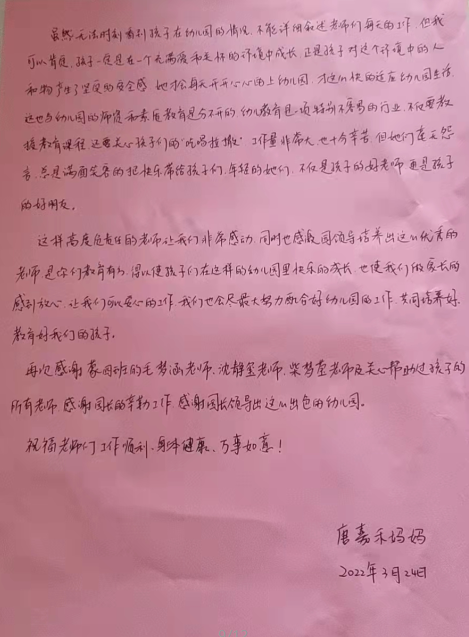 虽然无法时刻看到孩子在幼儿园的情况,不能详细叙述老师们每天的工作,但我
可以肯定,孩子一定是在一个充满爱和关怀的环境中成长,正是孩子对这个环境中的人
和物产生了足够的安全感,她才会每天开开心心的上幼儿园,才这么快的适应幼儿园生活
这也与幼儿园的师资和素质教育是分不开的,幼儿教育是一项特别不容易的行业,不仅要教
授教育课程,还要关心孩子们的"吃喝拉撒"工作量非常大,也十分辛苦,但她们毫无怨
言,总是满面笑容的把快乐带给孩子们,年轻的她们,不仅是孩子的好老师,更是孩子
的好朋友。
这样高度负责任的老师让我们非常感动,同时也感激园领导培养出这么优秀的
老师,是你们教育有方,得以使孩子们在这样的幼儿园里快乐的成长,也使我们做家长的
感到放心,让我们可以安心的工作,我们也会尽最大努力配合好幼儿园的工作,共同培养好,
教育好我们的孩子。
再次感谢蒙四班的毛梦涵老师、沈静雯老师、柴梦莹老师及关心帮助过孩子的
所有老师,感谢园长的辛勤工作,感谢园长领导出这么出色的幼儿园。
祝福老师们工作顺利,身体健康,万事如意!
唐嘉禾妈妈
2022年3月24日